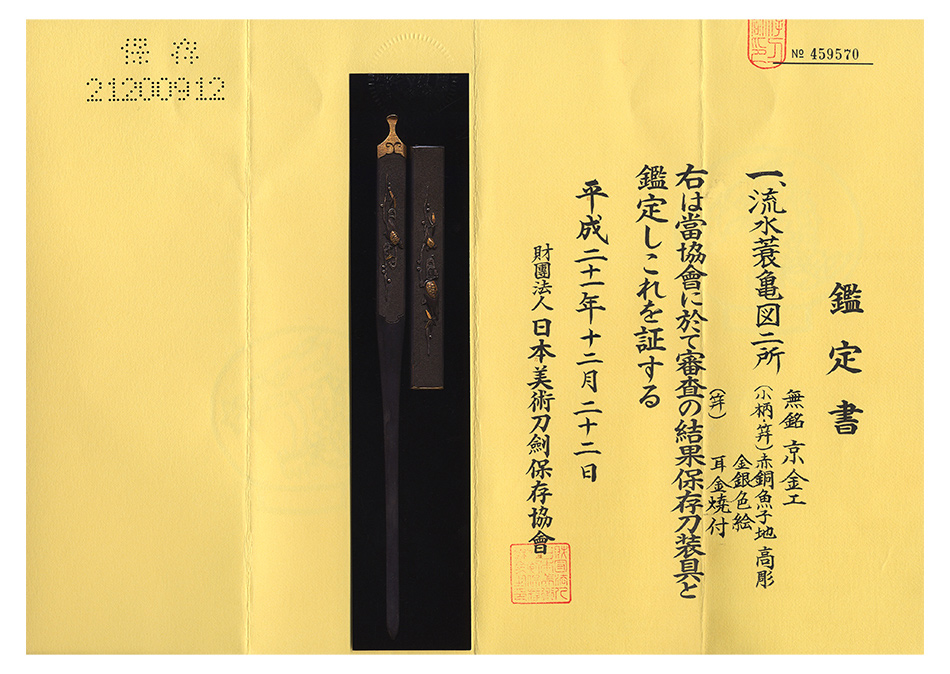 保存
21200912
№ 459570
鑑定書
一、流水蓑亀図二所
無銘 京金工
(小柄・笄)赤銅魚子地 高彫
金銀色絵
(笄) 耳金焼付
右は當協會に於て審査の結果保存刀装具と
鑑定しこれを証する
平成二十一年十二月二十二日
財團法人 日本美術刀劍保存協會